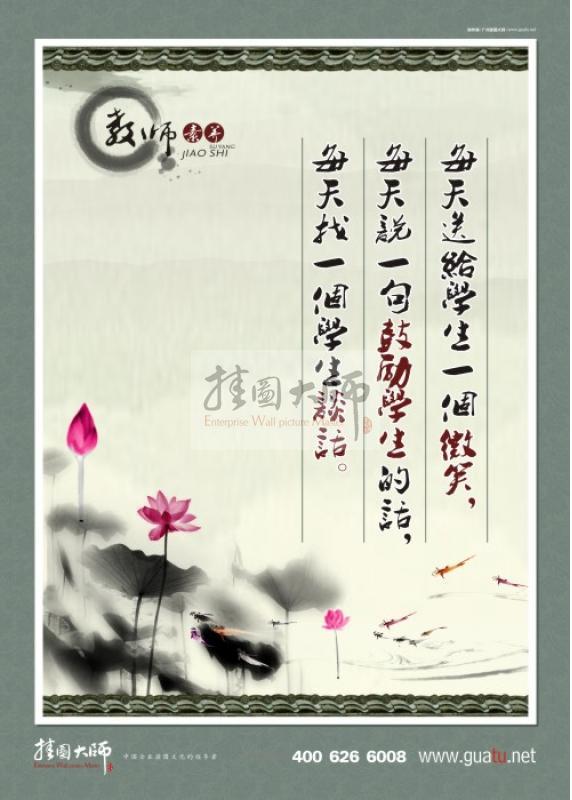 教师
素养
SU YANG
JIAO SHI
每天送給學生一個微笑，
每天說一句鼓勵學生的話，
每天找一個學生談話。
挂图大师
Enterprise Wall picture Master
挂图大师
Enterprise Wall picture Master
中国企业挂图文化的领导者
400 626 6008
www.guatu.net